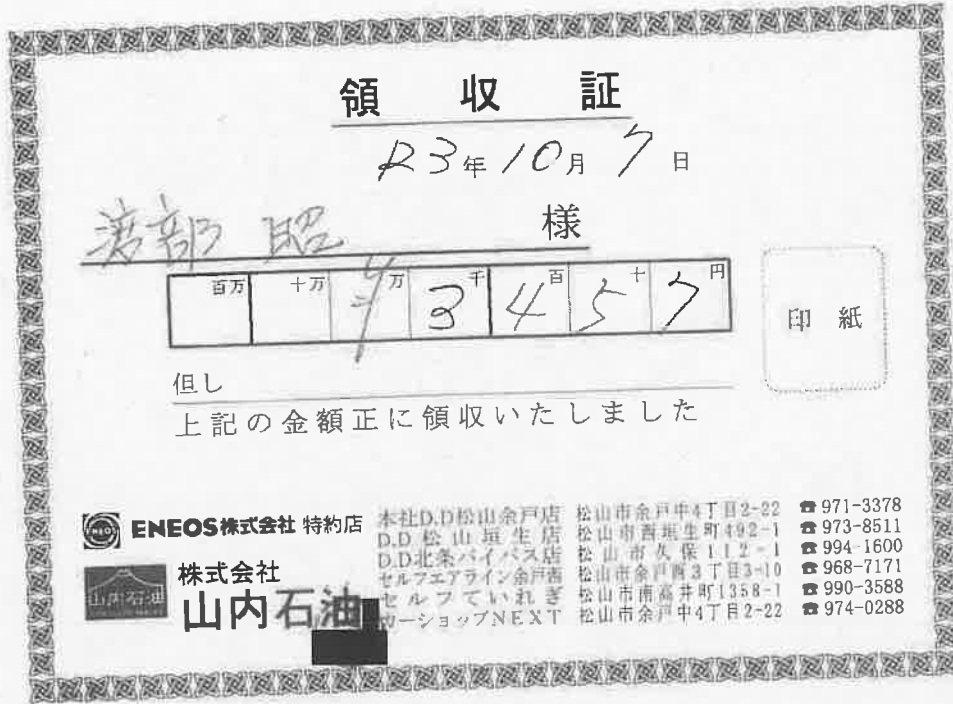 領収証
R3年10月7日
渡部 昭 様
百万 十万 万 千 百 十 円
¥ 3 4 5 7
印紙
但し
上記の金額正に領収いたしました
ENEOS株式会社 特約店
株式会社
山内石油
山内石油
本社D.D松山余戸店 松山市余戸中4丁目2-22 ☎971-3378
D.D松山垣生店 松山市西垣生町492-1 ☎973-8511
D.D北条バイパス店 松山市久保112-1 ☎994-1600
セルフエアライン余戸西 松山市余戸西3丁目3-10 ☎968-7171
セルフていれぎ 松山市南高井町1358-1 ☎990-3588
カーショップNEXT 松山市余戸中4丁目2-22 ☎974-0288